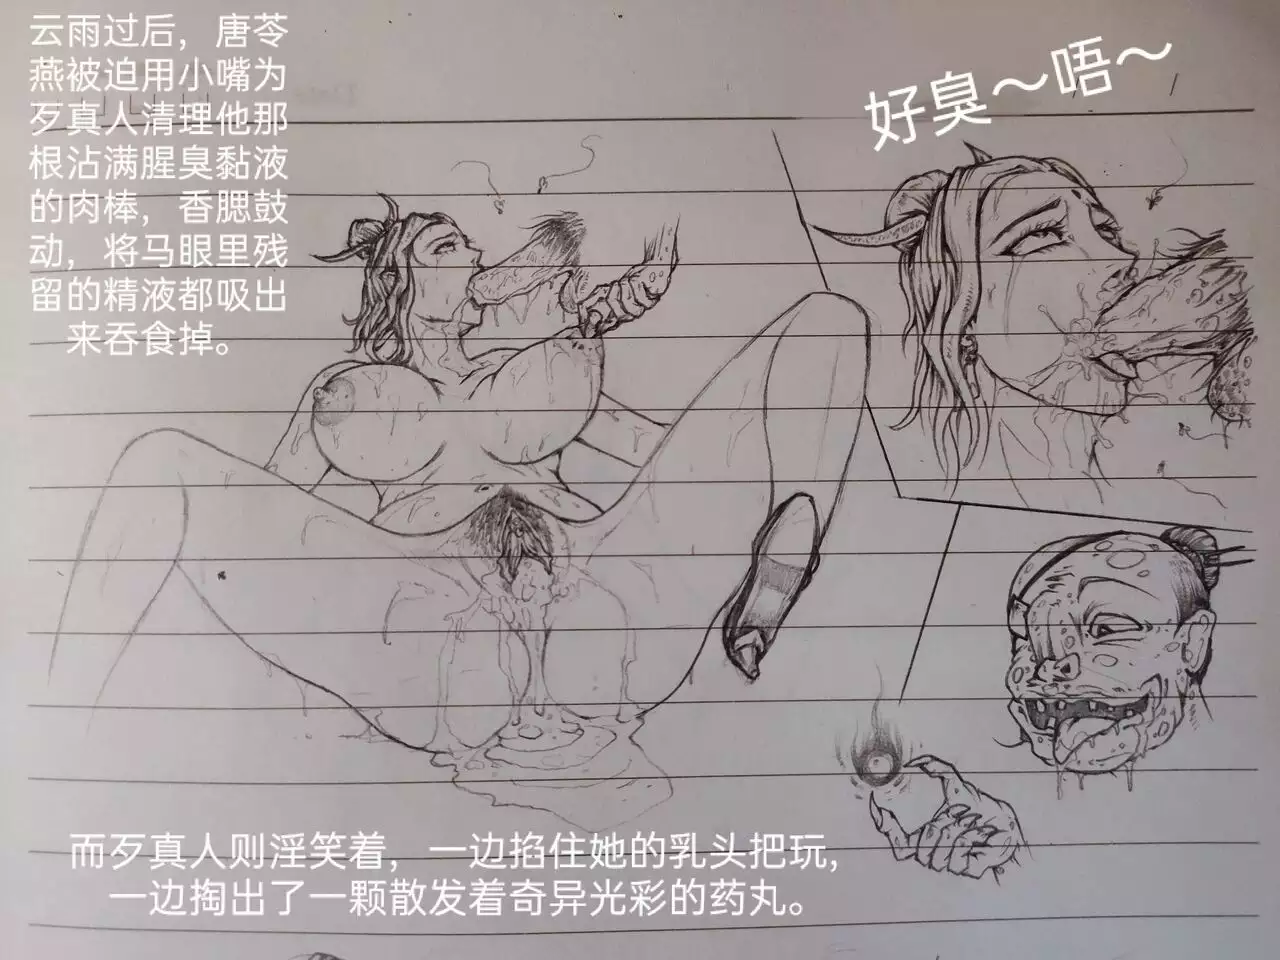 云雨过后，唐苓
燕被迫用小嘴为
歹真人清理他那
根沾满腥臭黏液
的肉棒，香腮鼓
动，将马眼里残
留的精液都吸出
来吞食掉。
好臭～唔～
而歹真人则淫笑着，一边掐住她的乳头把玩，
一边掏出了一颗散发着奇异光彩的药丸。